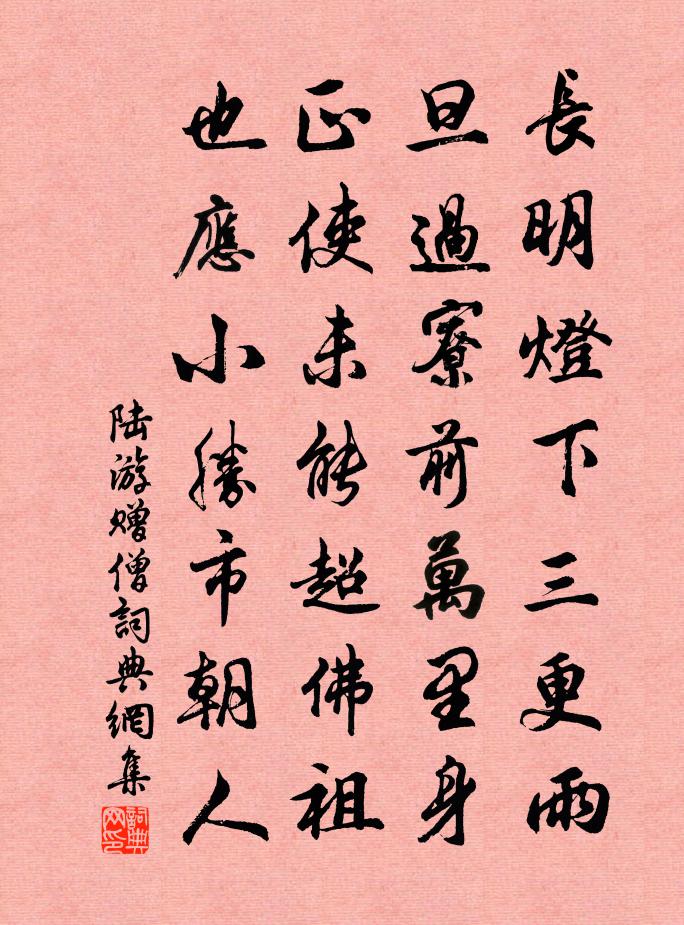 長明燈下三更雨
旦過寮前萬里身
正使未能超佛祖
也應小勝市朝人
陆游赠僧詞典網集
詞典
网印